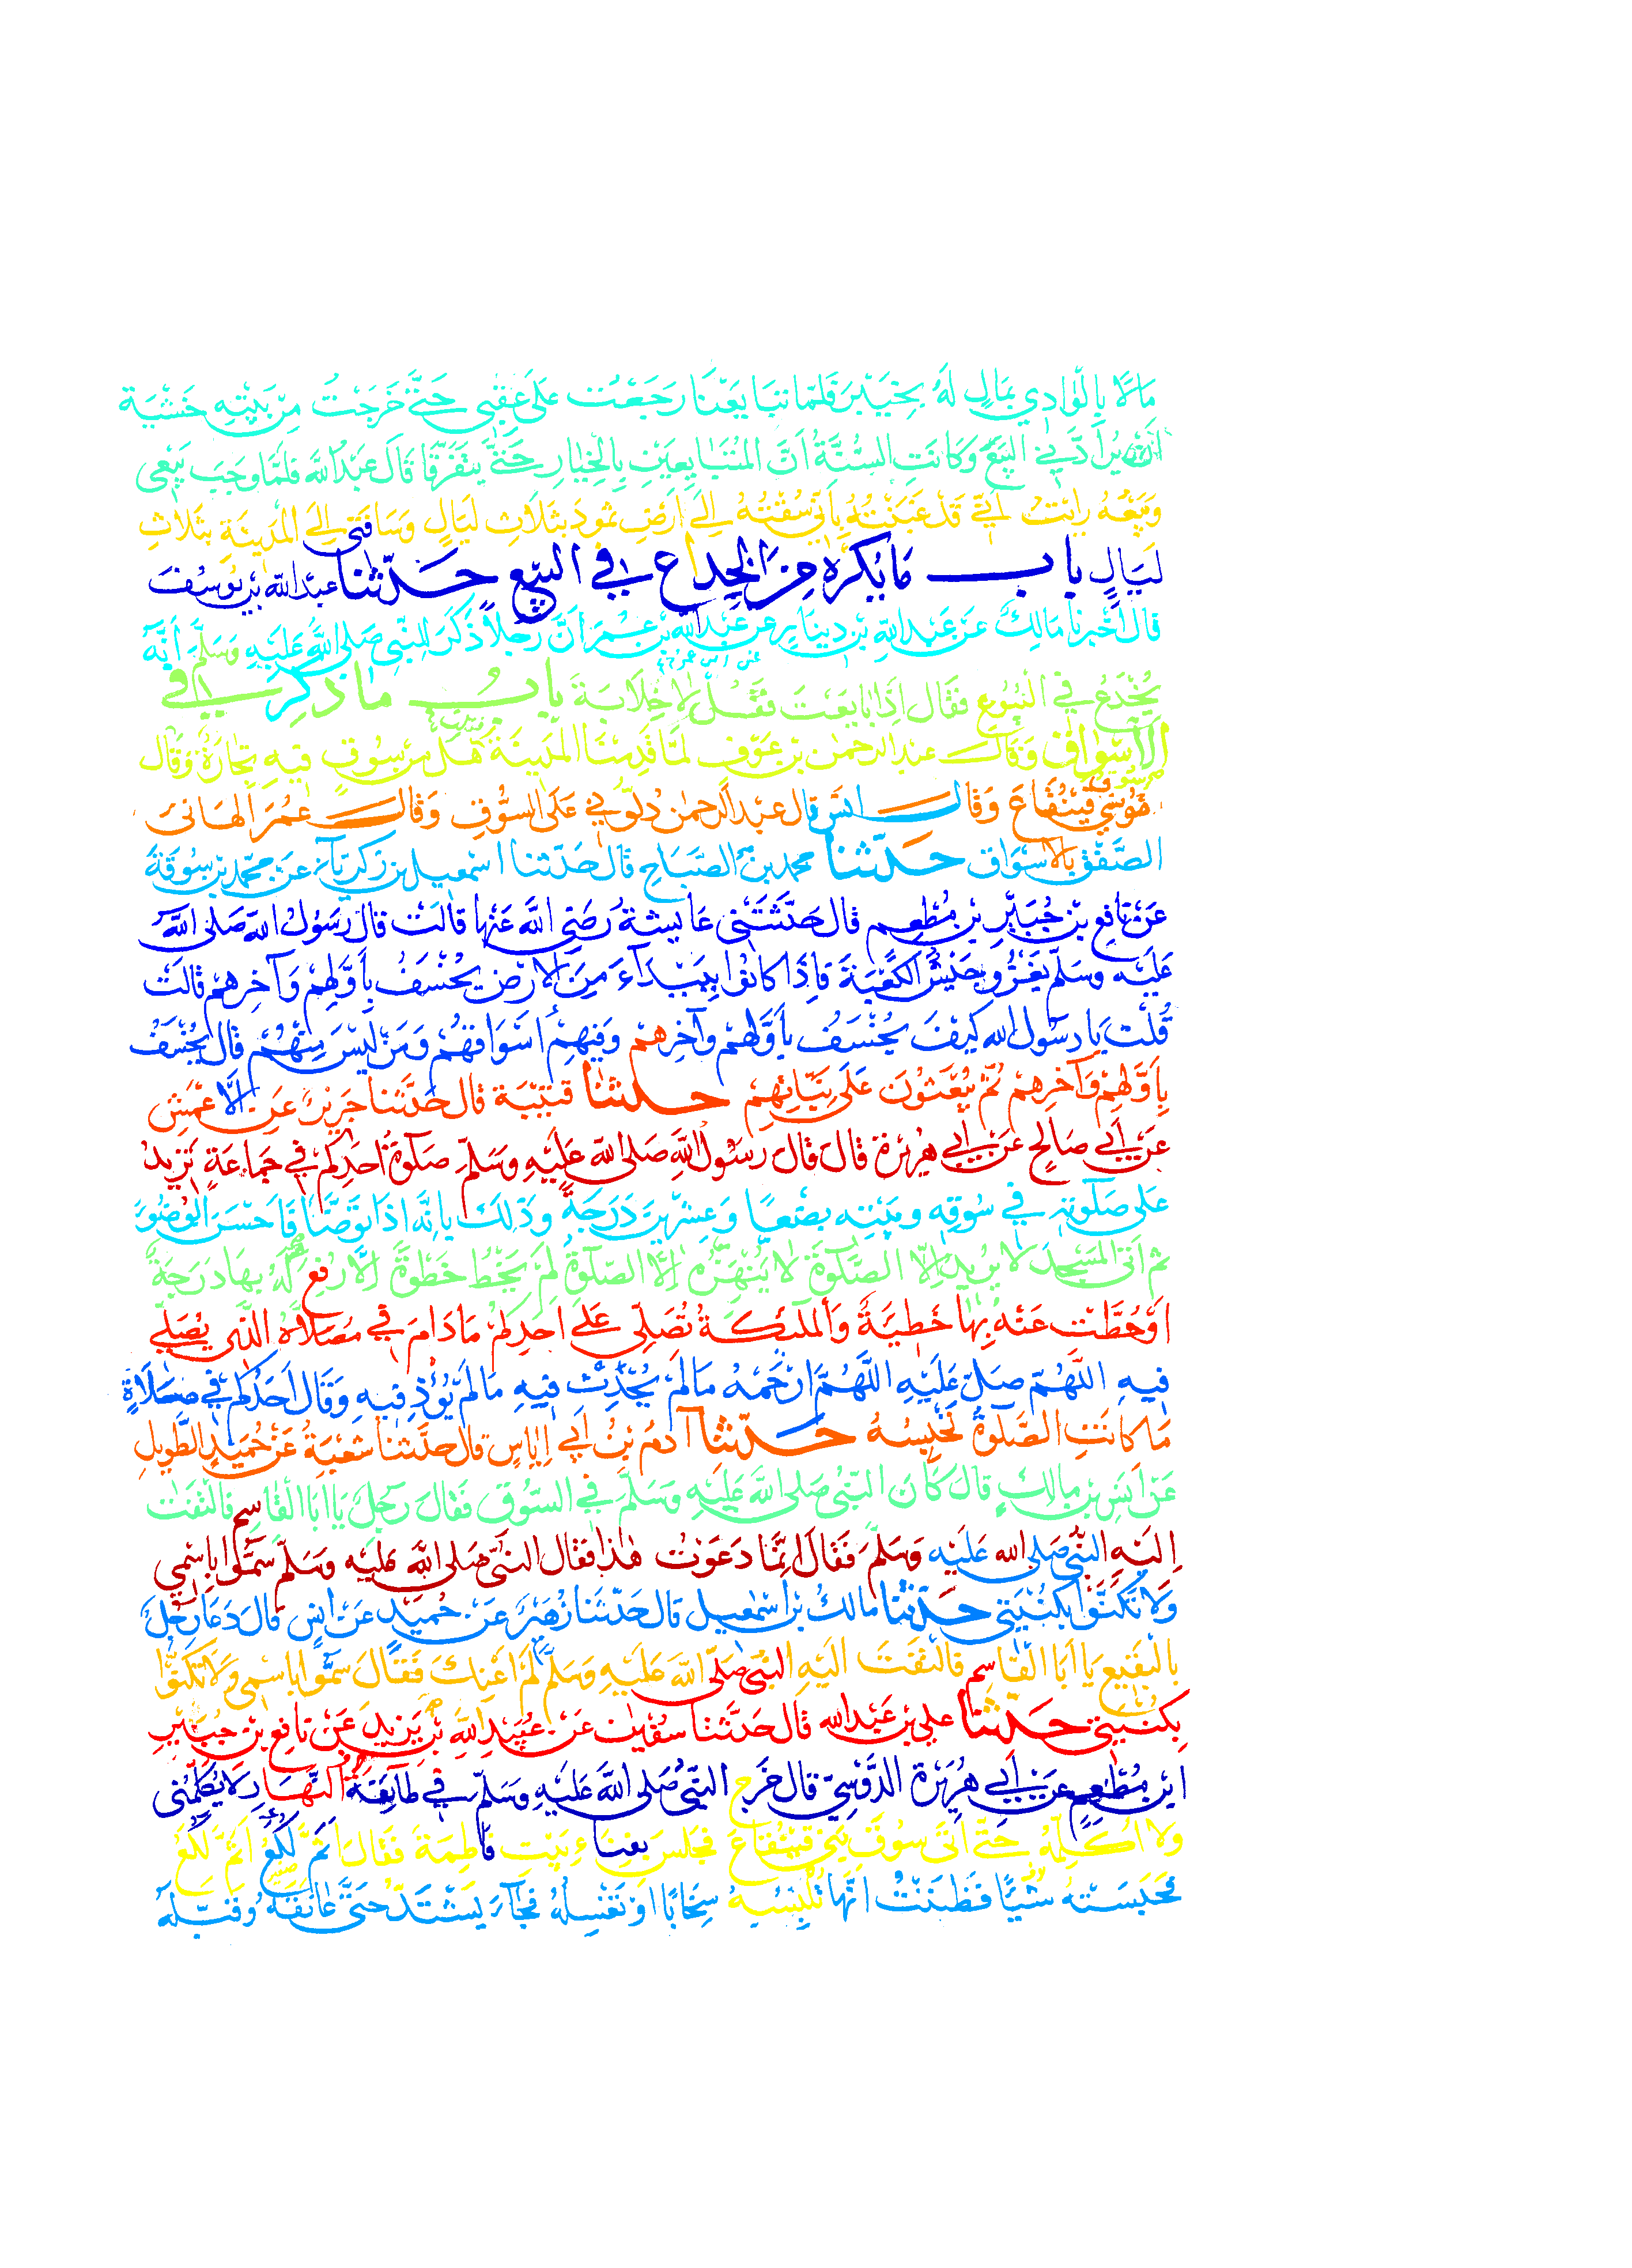 مَالًا بِالْوَادِي بِمَالٍ لَهُ بِخَيْبَرَ فَلَمَّا تَبَايَعْنَا رَجَعْتُ عَلَى عَقِبَيَّ حَتَّى خَرَجْتُ مِنْ بَيْتِهِ خَشْيَةَ
اَنْ يُرَادَّنِي الْبَيْعَ وَكَانَتِ السُّنَّةُ اَنَّ الْمُتَبَايِعَيْنِ بِالْخِيَارِ حَتَّى يَتَفَرَّقَا قَالَ عَبْدُ اللهِ فَلَمَّا وَجَبَ بَيْعِي
وَبَيْعُهُ رَايْتُ اَنِّي قَدْ غَبَنْتُهُ بِاَنِّي سُقْتُهُ اِلَى اَرْضِ ثَمُودَ بِثَلَاثِ لَيَالٍ وَسَاقَنِي اِلَى الْمَدِينَةِ بِثَلَاثِ
لَيَالٍ بابُ مَا يُكْرَهُ مِنَ الْخِدَاعِ فِي الْبَيْعِ حَدَّثَنَا عبدالله بن يُوسُفَ
قَالَ اَخْبَرنَا مَالِكٌ عَنْ عَبْدِ اللهِ بْنِ دِينَارٍ عَنْ عَبْدِ اللهِ بْنِ عُمَرَ اَنَّ رَجُلًا ذَكَرَ لِلنَّبِيِّ صَلَى اللهُ عَلَيْهِ وَسَلَّمَ اَنَّهُ
يُخْدَعُ فِي الْبُيُوعِ فَقَالَ اِذَا بَايَعْتَ فَقُلْ لَا خِلَابَةَ بابُ مَا ذُكِرَ فِي
الْاَسْوَاقِ وَقَالَ عبد الرحمن بن عَوْفٍ لَمَّا قَدِمْنَا الْمَدِينَةَ هَلْ مِنْ سُوقٍ فِيهِ تِجَارَةٌ وَقَال
سُوقُ قَيْنُقَاعَ وَقَالَ انسٌ قال عبد الرحمن دُلُّونِي عَلَى السُّوقِ وَقَالَ عُمَرُ اَلْهَانِي
الصَّفْقُ بِالْاَسْوَاقِ حَدَّثَنَا محمد بن الصَّبَّاحِ قَالَ حَدَّثَنَا اسْمعِيلُ بن زَكَرِيَّاءَ عَنْ مُحَمَّدِ بْنِ سُوقَةَ
عَنْ نَافِعِ بْنِ جُبَيْرِ بْنِ مُطْعِمٍ قَالَ حَدَّثَتْنِي عَايِشَةُ رَضِيَ اللهُ عَنْهَا قَالَتْ قَالَ رَسُولُ اللهِ صَلَى اللهُ
عَلَيْهِ وَسَلَّمَ يَغْزُو جَيْشٌ الْكَعْبَةَ فَاِذَا كَانُوا بِبَيْدَاءَ مِنَ الْاَرْضِ يُخْسَفُ بِاَوَّلِهِمْ وَآخِرِهِمْ قَالَتْ
قُلْتُ يَا رَسُولَ اللهِ كَيْفَ يُخْسَفُ بِاَوَّلِهِمْ وَآخِرِهِمْ وَفِيهِمْ اَسْوَاقُهُمْ وَمَنْ لَيْسَ مِنْهُمْ قَالَ يُخْسَفُ
بِاَوَّلِهِمْ وَآخِرِهِمْ ثُمَّ يُبْعَثُونَ عَلَى نِيَّاتِهِمْ حَدَّثَنَا قُتَيْبَةُ قَالَ حَدَّثَنَا جَرِيرٌ عَنِ الْاَعْمَشِ
عَنْ اَبِي صَالِحٍ عَنْ اَبِي هُرَيْرَةَ قَالَ قَالَ رَسُولُ اللهِ صَلَى اللهُ عَلَيْهِ وَسَلَّمَ صَلَوةُ اَحَدِكُمْ فِي جَمَاعَةٍ تَزِيدُ
عَلَى صَلَوتِهِ فِي سُوقِهِ وَبَيْتِهِ بِضْعًا وَعِشْرِينَ دَرَجَةً وَذَلِكَ بِاَنَّهُ اِذَا تَوَضَّأَ فَاَحْسَنَ الْوُضُوءَ
ثُمَّ اَتَى الْمَسْجِدَ لَا يُرِيدُ اِلَّا الصَّلَوةَ لَا يَنْهَزُهُ اِلَّا الصَّلَوةُ لَمْ يَخْطُ خَطْوَةً اِلَّا رُفِعَ لَهُ بِهَا دَرَجَةٌ
اَوْ حُطَّتْ عَنْهُ بِهَا خَطِيئَةٌ وَالْمَلَئِكَةُ تُصَلِّي عَلَى اَحَدِكُمْ مَا دَامَ فِي مُصَلَّاهُ الَّذِي يُصَلِّي
فِيهِ اللَّهُمَّ صَلِّ عَلَيْهِ اللَّهُمَّ ارْحَمْهُ مَا لَمْ يُحْدِثْ فِيهِ مَا لَمْ يُؤْذِ فِيهِ وَقَالَ اَحَدُكُمْ فِي صَلَاةٍ
مَا كَانَتِ الصَّلَوةُ تَحْبِسُهُ حَدَّثَنَا آدَمُ بْنُ اَبِي اِيَاسٍ قَالَ حَدَّثَنَا شُعْبَةُ عَنْ حُمَيْدٍ الطَّوِيلِ
عَنْ اَنَسِ بْنِ مَالِكٍ قَالَ كَانَ النَّبِيُّ صَلَى اللهُ عَلَيْهِ وَسَلَّمَ فِي السُّوقِ فَقَالَ رَجُلٌ يَا اَبَا الْقَاسِمِ فَالْتَفَتَ
اِلَيْهِ النَّبِيُّ صَلَى الله عَلَيْهِ وَسَلَّمَ فَقَالَ اِنَّمَا دَعَوْتُ هَذَا فَقَالَ النَّبِيُّ صَلَى اللهُ عَلَيْهِ وَسَلَّمَ سَمُّوا بِاسْمِي
وَلَا تَكَنَّوْا بِكُنْيَتِي حَدَّثَنَا مَالِكُ بْنُ اسْمعِيل قَالَ حَدَّثَنَا زُهَيْرٌ عَنْ حُمَيْدٍ عَنْ اَنَسٍ قَالَ دَعَا رَجُلٌ
بِالْبَقِيعِ يَا اَبَا الْقَاسِمِ فَالْتَفَتَ اِلَيْهِ النَّبِيُّ صَلَى اللهُ عَلَيْهِ وَسَلَّمَ لَمْ اَعْنِكَ فَقَالَ سَمُّوا بِاسْمِي وَلَا تَكَنَّوْا
بِكُنْيَتِي حَدَّثَنَا عَلِيُّ بْنُ عَبْدِ اللهِ قَالَ حَدَّثَنَا سُفْيَانُ عَنْ عُبَيْدِ اللهِ بْنِ يَزِيدَ عَنْ نَافِعِ بْنِ جُبَيْرِ
ابْنِ مُطْعِمٍ عَنْ اَبِي هُرَيْرَةَ الدَّوْسِيِّ قَالَ خَرَجَ النَّبِيُّ صَلَى اللهُ عَلَيْهِ وَسَلَّمَ فِي طَائِفَةِ النَّهَارِ لَا يُكَلِّمُنِي
وَلَا اُكَلِّمُهُ حَتَّى اَتَى سُوقَ بَنِي قَيْنُقَاعَ فَجَلَسَ بِفِنَاءِ بَيْتِ فَاطِمَةَ فَقَالَ اَثَمَّ لُكَعُ اَثَمَّ لُكَعُ
فَحَبَسَتْهُ شَيْئًا فَظَنَنْتُ اَنَّهَا تُلْبِسُهُ سِخَابًا اَوْ تُغَسِّلُهُ فَجَاءَ يَشْتَدُّ حَتَّى عَانَقَهُ وَقَبَّلَهُ